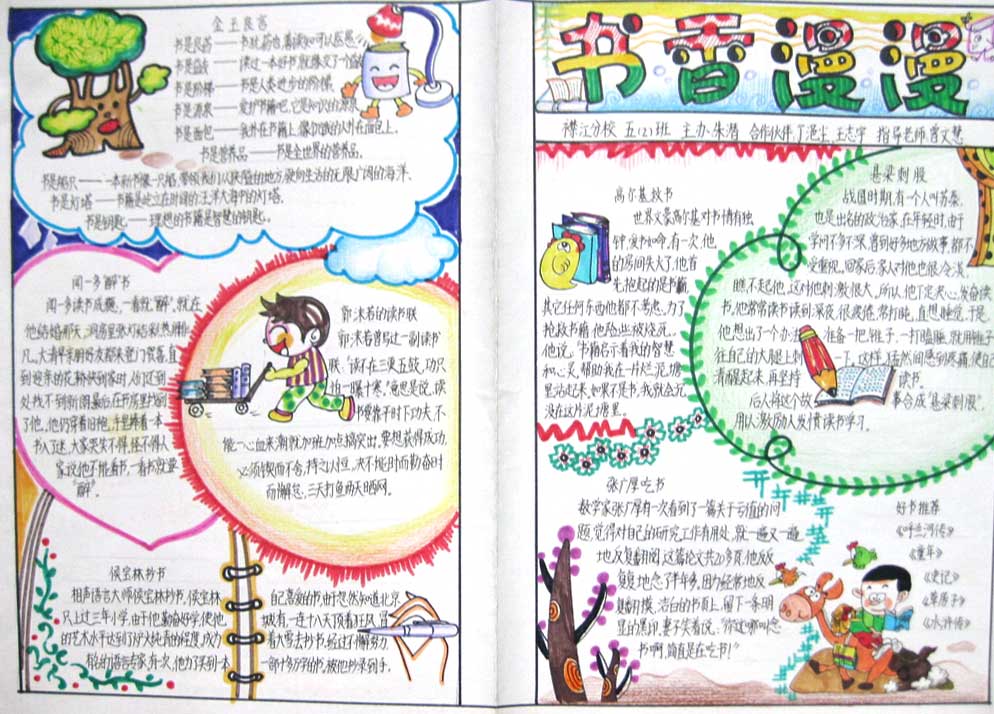 金玉良言
书是良药——书犹药也,善读之可以医愚
书是益友——读过一本好书,就像交了一个益友
书是阶梯——书是人类进步的阶梯.
书是源泉——爱护书籍吧,它是知识的源泉
书是面包——我扑在书籍上,像饥饿的人扑在面包上.
书是营养品——书是全世界的营养品.
书是船只——一本新书像一只船,带领我们从狭隘的地方,驶向生活的无限广阔的海洋.
书是灯塔——书籍是屹立在时间的汪洋大海中的灯塔.
书是钥匙——理想的书籍是智慧的钥匙.
闻一多“醉”书
闻一多读书成瘾,一看就“醉”,就在
他结婚那天,洞房里张灯结彩,热闹非
凡,大清早亲朋好友都来登门贺喜,直
到迎亲的花轿快到家时,人们还到
处找不到新郎.最后在书房里找到
了他,他仍穿着旧袍,手里捧着一本
书入了迷,大家哭笑不得,怪不得人
家说他不能看书,一看书就要
“醉”.
郭沫若的读书联
郭沫若曾写过一副读书
联:“读不在三更五鼓,功只
怕一曝十寒.”意思是说,读
书要靠平时下功夫,不
能一心血来潮,就加班加点搞突出,要想获得成功,
必须锲而不舍,持之以恒,决不能时而勤奋时
而懈怠,三天打鱼两天晒网.
侯宝林抄书
相声语言大师侯宝林抄书,侯宝林
只上过三年小学,由于他勤奋好学,使他
的艺术水平达到了炉火纯青的程度,成为
有名的语言专家.有一次,他为了买到一本
自己喜爱的书,由于忽然知道北京
城有,一连十八天顶着狂风,冒
着大雪去抄书,经过不懈努力,
一部十多万字的书,被他抄录到手.
书香漫漫
襟江分校 五(2)班 主办:朱潜 合作伙伴:丁滟尘,王志宇 指导老师:曹文慧
高尔基救书
世界文豪高尔基对书情有独
钟,爱书如命,有一次,他
的房间失火了,他首
先抱起的是书籍,
其它任何东西他都不考虑,为了
抢救书籍,他险些被烧死.
他说:“书籍启示着我的智慧
和心灵,帮助我在一片烂泥塘
里站起来,如果不是书,我就会沉
没在这片泥塘里.
悬梁刺股
战国时期,有一个人叫苏秦,
也是出名的政治家,在年轻时,由于
学问不多不深,曾到好多地方做事,都不
受重视.回家后,家人对他也很冷淡,
瞧不起他,这对他刺激很大,所以,他下定决心,发奋读
书,他常常读书读到深夜,很疲倦,常打盹,直想睡觉,于是,
他想出了一个办法,准备一把锥子,一打瞌睡,就用锥子
往自己的大腿上刺一下.这样,猛然间感到疼痛,使自己
清醒起来,再坚持读书.
后人将这个故事合成“悬梁刺股”,
用以激励人发愤读书学习.
张广厚吃书
数学家张广厚有一次看到了一篇关于亏值的问
题,觉得对自己的研究工作有用处,就一遍又一遍
地反复翻阅,这篇论文共20多页,他反反
复复地念了半年多,因为经常地反
复翻摸,洁白的书页上,留下一条明
显的黑印,妻子笑着说:“你这哪叫念
书啊,简直是在吃书!”
好书推荐
《呼兰河传》
《童年》
《史记》
《草房子》
《水浒传》